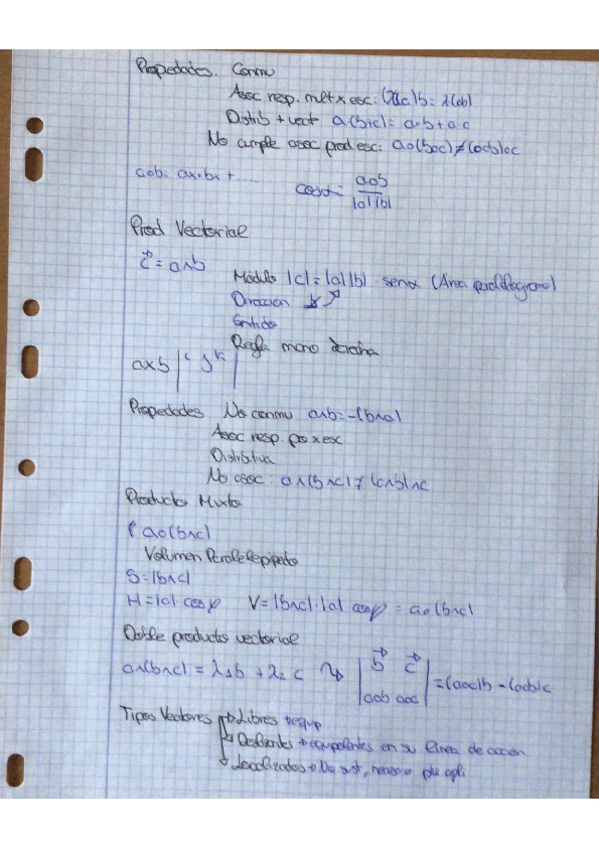 Propiedades. Conmu
Asoc resp. mult x esc: (λa)b = λ(ab)
Distrib + vect a(b+c) = a·b + a·c
No cumple asoc prod esc: a∘(b∘c) ≠ (a∘b)∘c
a∘b: ax·bx + ......
cosα = a∘b / |a||b|
Prod Vectorial
c⃗ = a∧b
Módulo |c| = |a||b| · senα (Area paralelogramo)
Dirección
Sentido
Regla mano derecha
a×b | i j k |
Propiedades No conmu a∧b = -(b∧a)
Asoc resp. po x esc
Distributiva
No asoc: a∧(b∧c) ≠ (a∧b)∧c
Producto Mixto
a∘(b∧c)
Volumen Paralelepipedo
S = |b∧c|
H = |a| cosφ V = |b∧c|·|a| cosφ = a∘(b∧c)
Doble producto vectorial
a∧(b∧c) = λ₁b + λ₂c → | b⃗ c⃗ |
| a∘b a∘c | = (a∘c)b - (a∘b)c
Tipos Vectores → Libres → equip
→ Deslizantes → equipolentes en su linea de accion
→ Localizados → No sust, necesario pto apli